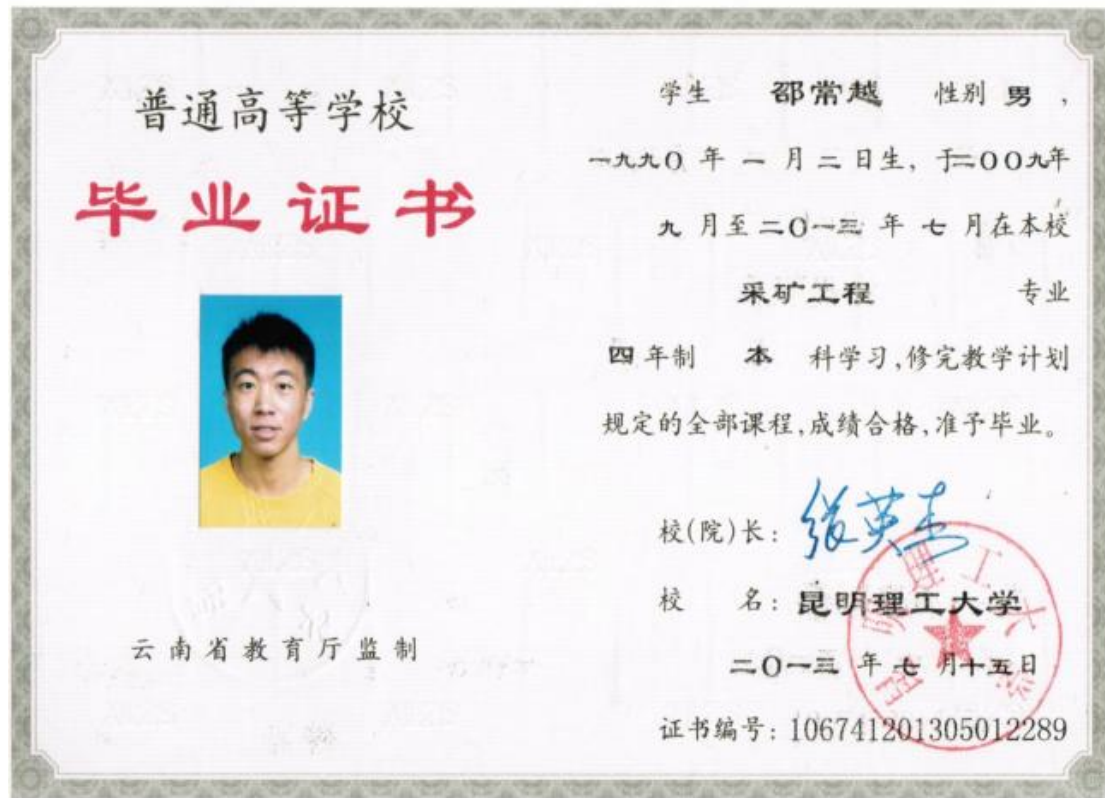 普通高等学校
毕业证书
云南省教育厅监制
学生 邵常越 性别 男，
一九九〇年一月二日生，于二〇〇九年
九月至二〇一三年七月在本校
采矿工程 专业
四年制 本 科学习，修完教学计划
规定的全部课程，成绩合格，准予毕业。
校(院)长：张英杰
校 名：昆明理工大学
二〇一三年七月十五日
证书编号：106741201305012289
昆明理工大学